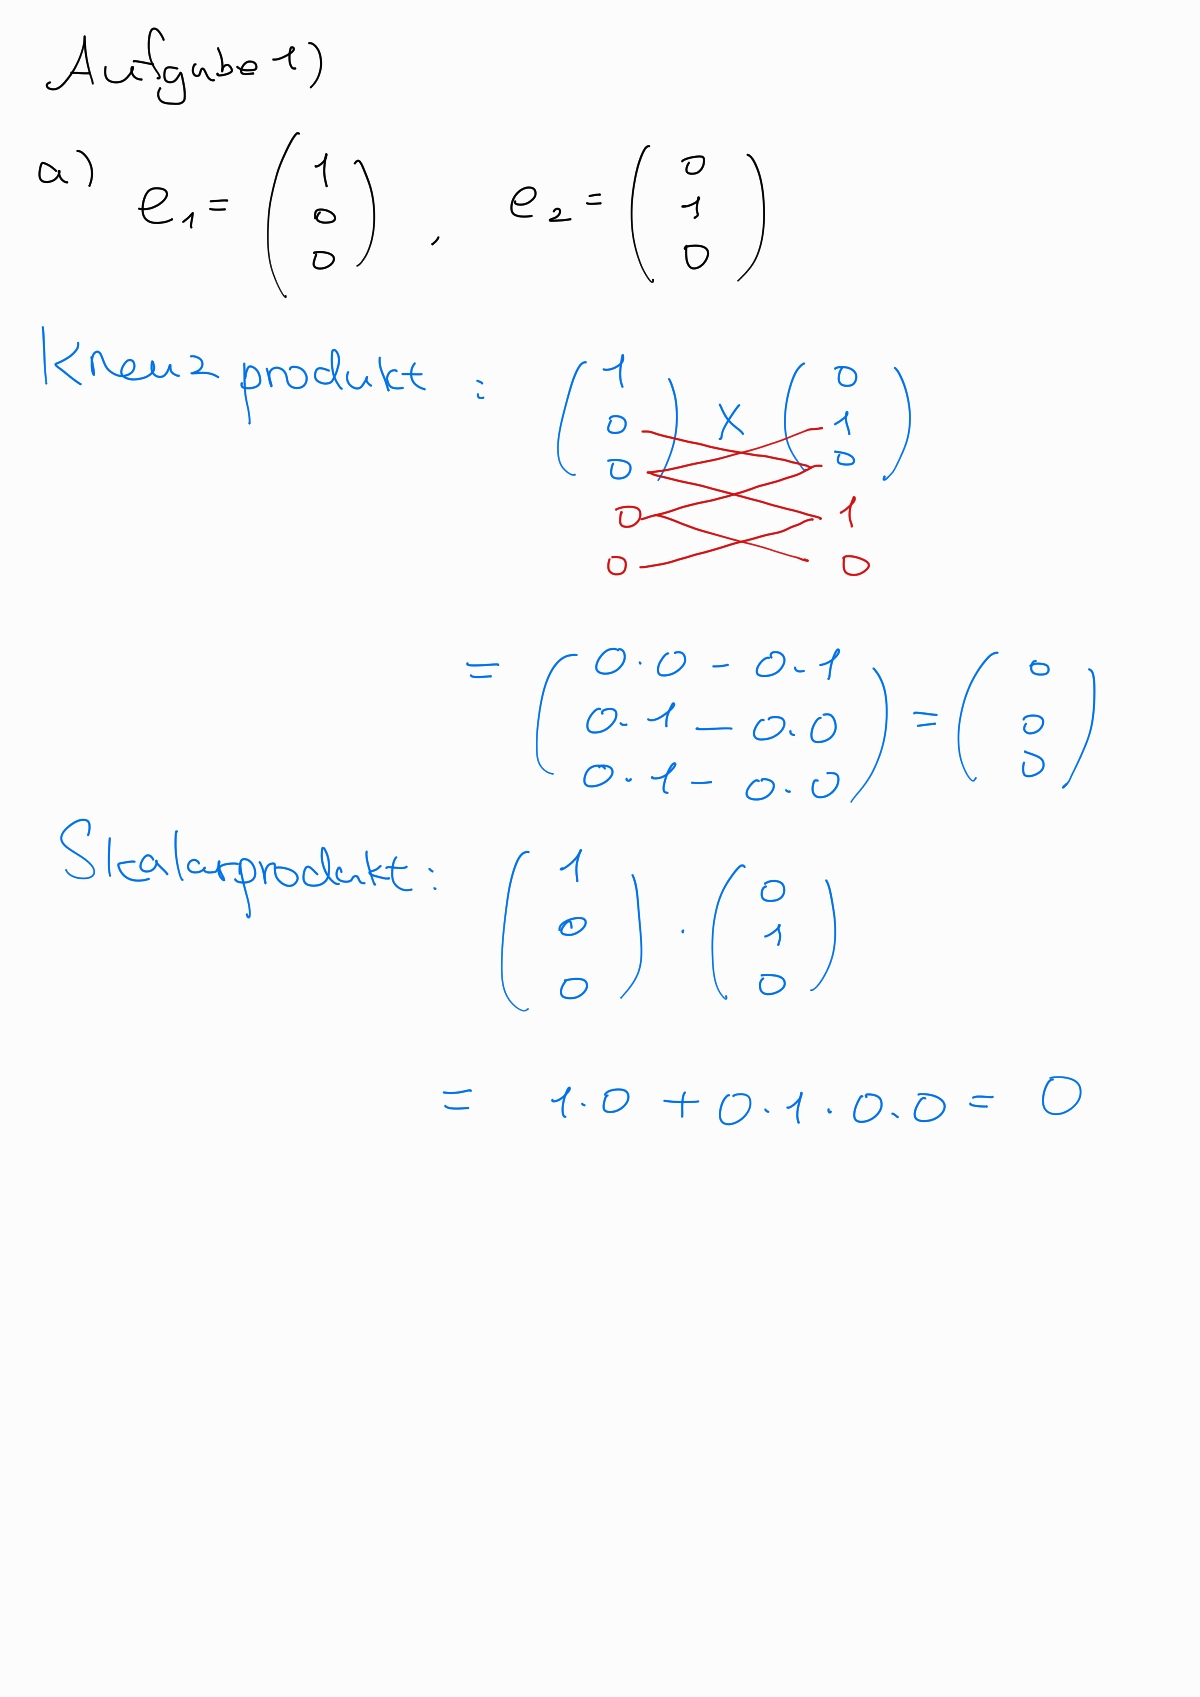 Aufgabe 1)
a) e₁ = (1 0 0) , e₂ = (0 1 0)
Kreuzprodukt : (1 0 0) × (0 1 0)
0 1
0 0
= (0·0 - 0·1 0·1 - 0·0 0·1 - 0·0) = (0 0 0)
Skalarprodukt: (1 0 0) · (0 1 0)
= 1·0 + 0·1·0·0 = 0